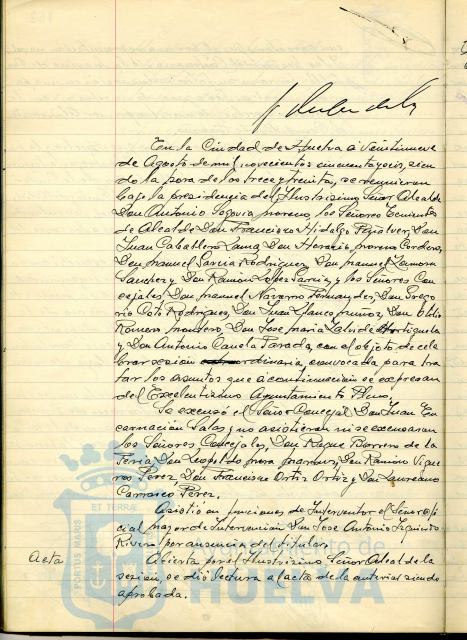 En la Ciudad de Huelva a Veintinueve
de Agosto de mil, novecientos cincuenta y seis, sien
do la hora de las trece y treinta, se reunieron
bajo la presidencia del Ilustrisimo Señor Alcalde
Don Antonio Segovia Moreno, los Señores Tenientes
de Alcalde Don Francisco Hidalgo Peñalver, Don
Juan Caballero Lama, Don Horacio Moreno Cordero,
Don Manuel Garcia Rodriguez, Don Manuel Zamora
Sanchez y Don Ramón Lopez Garcia, y los Señores Con
cejales, Don Manuel Navarro Fernandez, Don Grego
rio Rodriguez, Don Juan Llanes Muñoz, Don
Romero Montero, Don Jose Maria
y Don Antonio Canela Parada, con el objeto de cele
brar sesión ordinaria, convocada para tra
tar los asuntos que a continuación se expresan
del Excelentisimo Ayuntamiento Pleno.
Se excusó el Señor Concejal Don Juan En
carnación Salas y no asistieron ni se excusaron
los Señores Concejales, Don Roque Barrero de la
Feria, Don Leopoldo Mora Don Ramiro Vigue
ros Perez, Don Francisco Ortiz Ortiz y Don Laureano
Carrasco Perez.
Asistió en funciones de Interventor el Señor ofi
cial mayor de Intervención Don Jose Antonio Izquierdo
Rivera por ausencia del titular.
Acta Abierta por el Ilustrisimo Señor Alcalde la
sesión, se dió lectura al acta de la anterior siendo
aprobada.
ET TERRAE
PORTUS MARIS
Ayuntamiento de
HUELVA